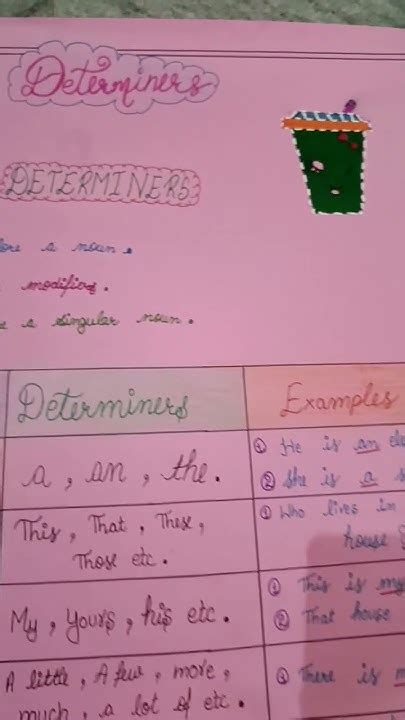 Determiners
DETERMINERS
a noun.
modifies.
a singular noun.
Determiners
Examples
a, an, the.
① He is an
② She is a
This, That, These,
Those etc.
① Who lives in
house
My, Yours, his etc.
① This is my
② That house
A little, A few, more,
much, a lot of etc.
① There is